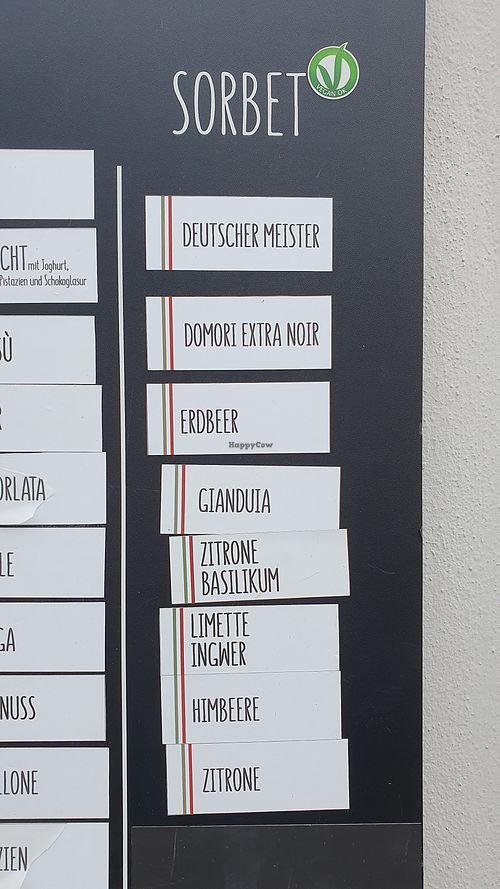 SORBET
VEGAN OK
DEUTSCHER MEISTER
DOMORI EXTRA NOIR
ERDBEER
HappyCow
GIANDUIA
ZITRONE
BASILIKUM
LIMETTE
INGWER
HIMBEERE
ZITRONE
CHT mit Joghurt,
Pistazien und Schokoglasur
SÙ
R
ORLATA
LE
GA
NUSS
LLONE
ZIEN